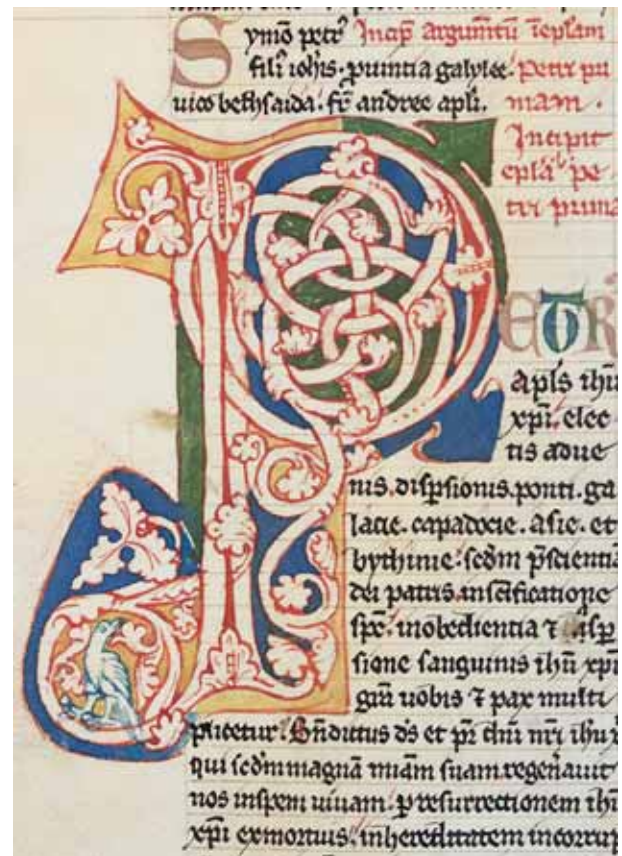 Symō petr᷒ Incip̄ argum̄tū īeplam
filī ioh̄is. puintia galylee. Petri pri
uico bethsaida. fr̄ andree apli. mam.
Incipit
epl̄a pe
tri prima
PETR
apl̄s ihū
xp̄i. elec
tis adue
nis. disp̄sionis. ponti. ga
lacie. capadocie. asie. et
bythinie. sc̄dm p̄scientiā
dei patris. in sc̄ificatione
sp̄c. in obedientia ⁊ asp̄
sione sanguinis ihū xp̄i
grā uobis ⁊ pax multi
plicetur. Bn̄dictus ds̄ et pr̄ dn̄i nr̄i ihū x̄
qui sc̄dm magnā mīam suam regen̄auit
nos in spem uiuam. p resurrectionem ihū
xp̄i ex mortuis. in hereditatem incorrup